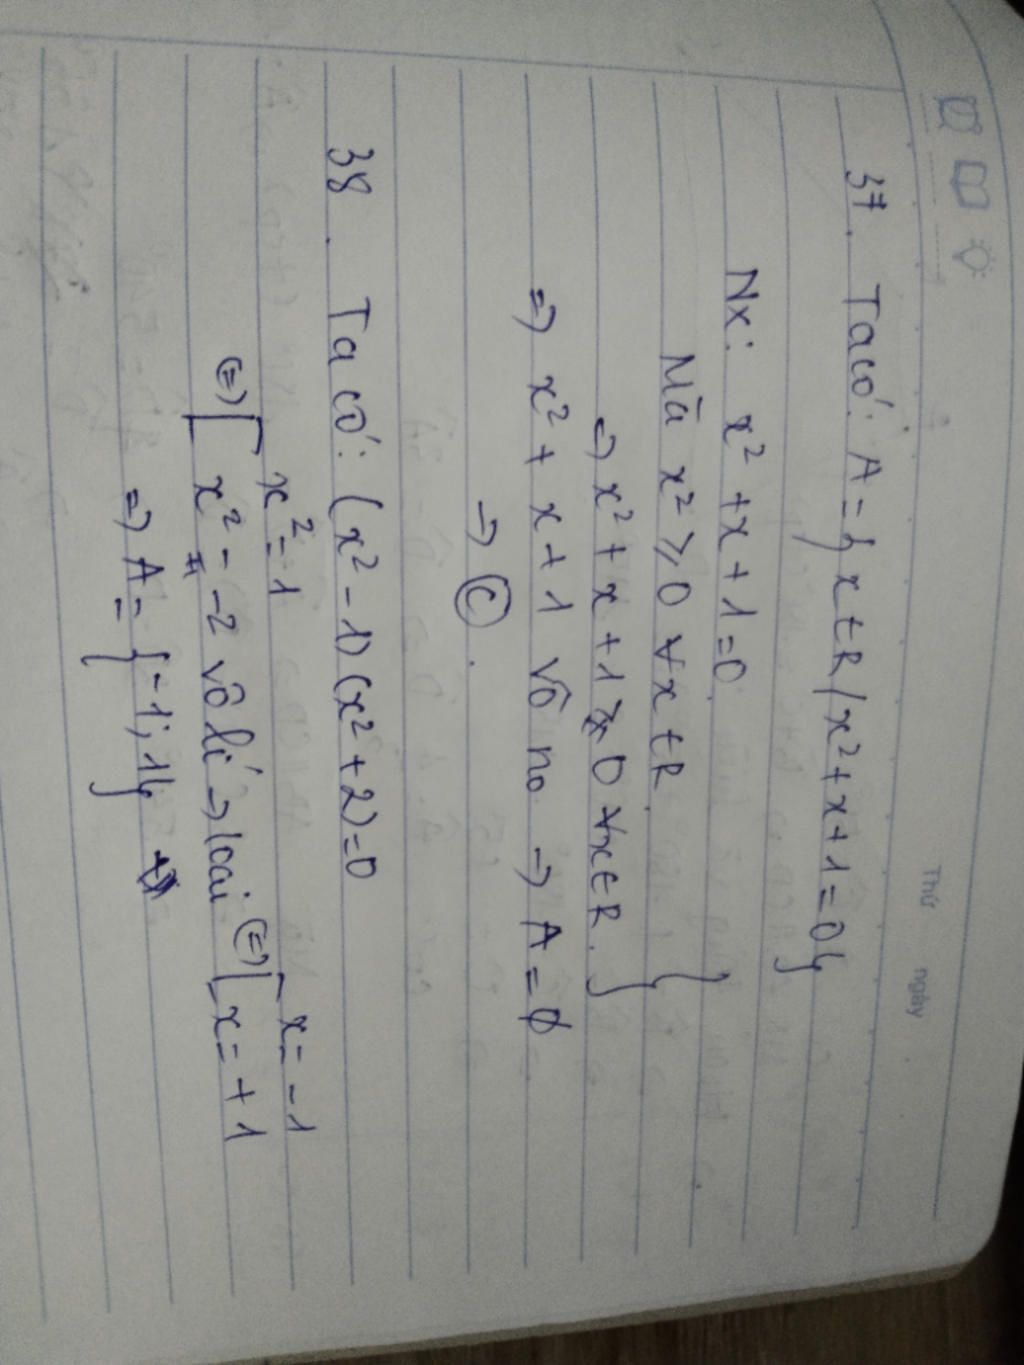 Thứ ngày
37. Ta có: A = { x ∈ R / x² + x + 1 = 0 }
Nx: x² + x + 1 = 0
Mà x² ≥ 0 ∀x ∈ R
=> x² + x + 1 > 0 ∀x ∈ R.
=> x² + x + 1 vô no -> A = ∅
-> (C).
38. Ta có: (x² - 1)(x² + 2) = 0
(=) [ x² = 1
x² = -2 vô lí -> loại (=) [ x = -1
x = +1
=> A = { -1; 1 }